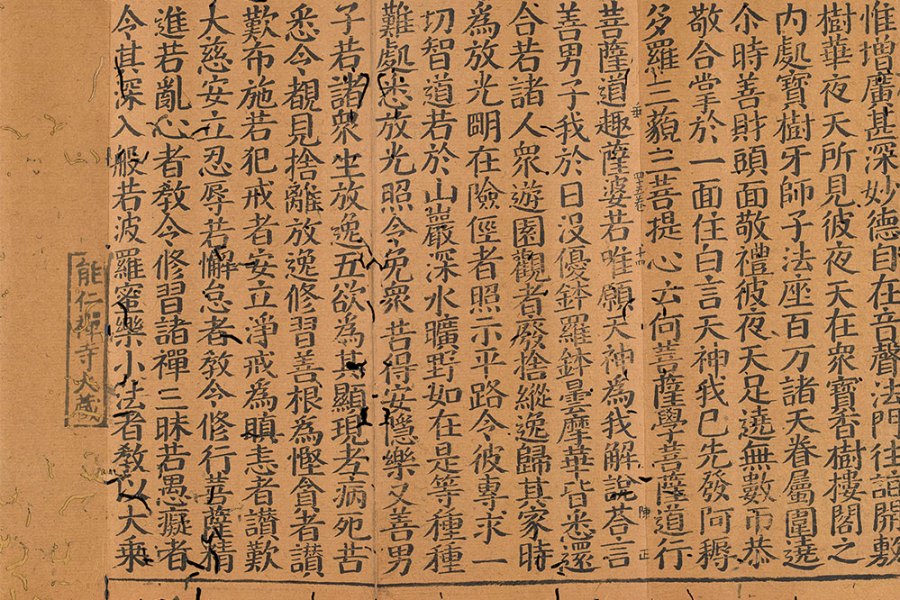 惟增廣甚深妙德自在音聲法門往詣開敷
樹華夜天所見彼夜天在衆寶香樹樓閣之
內處寶樹牙師子法座百万諸天眷屬圍遶
尒時善財頭面敬禮彼夜天足遶無數帀恭
敬合掌於一面住白言天神我已先發阿耨
多羅三藐三菩提心云何菩薩學菩薩道行
垂 四五卷 十四 陳正
菩薩道趣薩婆若唯願天神為我解說荅言
善男子我於日没優鉢羅鉢曇摩華皆悉還
合若諸人衆遊園觀者廢捨縱逸歸其家時
為放光明在險徑者照示平路令彼專求一
切智道若於山巖深水曠野如在是等種種
難處悉放光照令免衆苦得安隱樂又善男
子若諸衆生放逸五欲為其顯現老病死苦
悉令覩見捨離放逸修習善根為慳貪者讃
歎布施若犯戒者安立淨戒為瞋恚者讃歎
大慈安立忍辱若懈怠者教令修行菩薩精
進若亂心者教令修習諸禪三昧若愚癡者
令其深入般若波羅蜜樂小法者教以大乘
能仁禪寺大藏